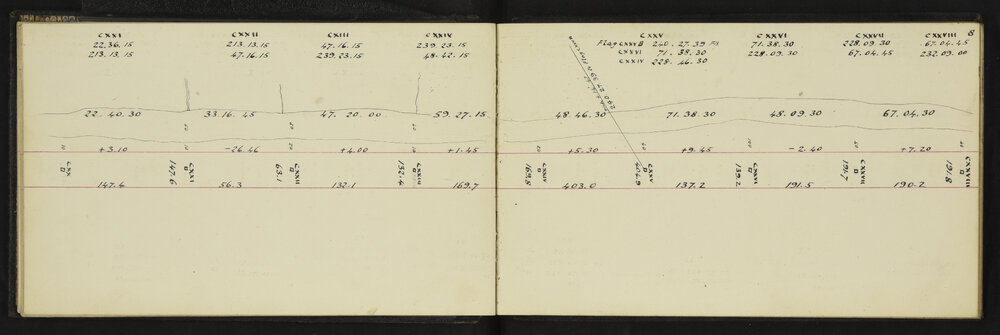 CXXI CXXII CXIII CXXIV
22.36.15 213.13.15 47.16.15 239.23.15
213.13.15 47.16.15 239.23.15 48.42.15
22.40.30 33.16.45 47.20.00 59.27.15
+3.10 -26.46 +4.00 +1.45
CXX 147.6 CXXI 63.1 CXXII 132.4 CXXIII
147.4 56.3 132.1 169.7
8
CXXV CXXVI CXXVII CXXVIII
Flag CXXV B 240.27.39 FS 71.38.30 228.09.30 67.04.45
CXXVI 71.38.30 228.09.30 67.04.45 232.09.00
CXXIV 228.46.30
48.46.30 71.38.30 48.09.30 67.04.30
+5.30 +9.45 -2.40 +7.20
169.8 CXXIV 404.9 CXXV 139.2 CXXVI 191.7 CXXVII 191.8 CXXVIII
403.0 137.2 191.5 190.2